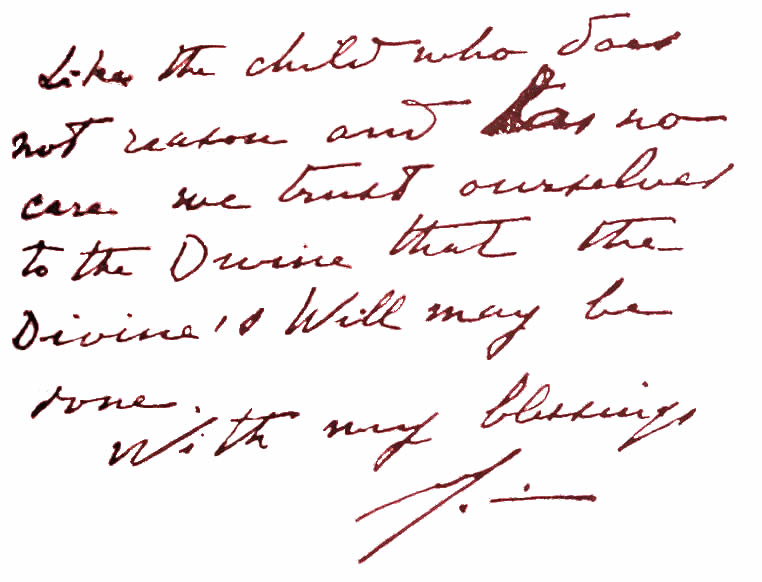 Like the child who does
not reason and has no
care we trust ourselves
to the Divine that the
Divine's Will may be
done.
With my blessings